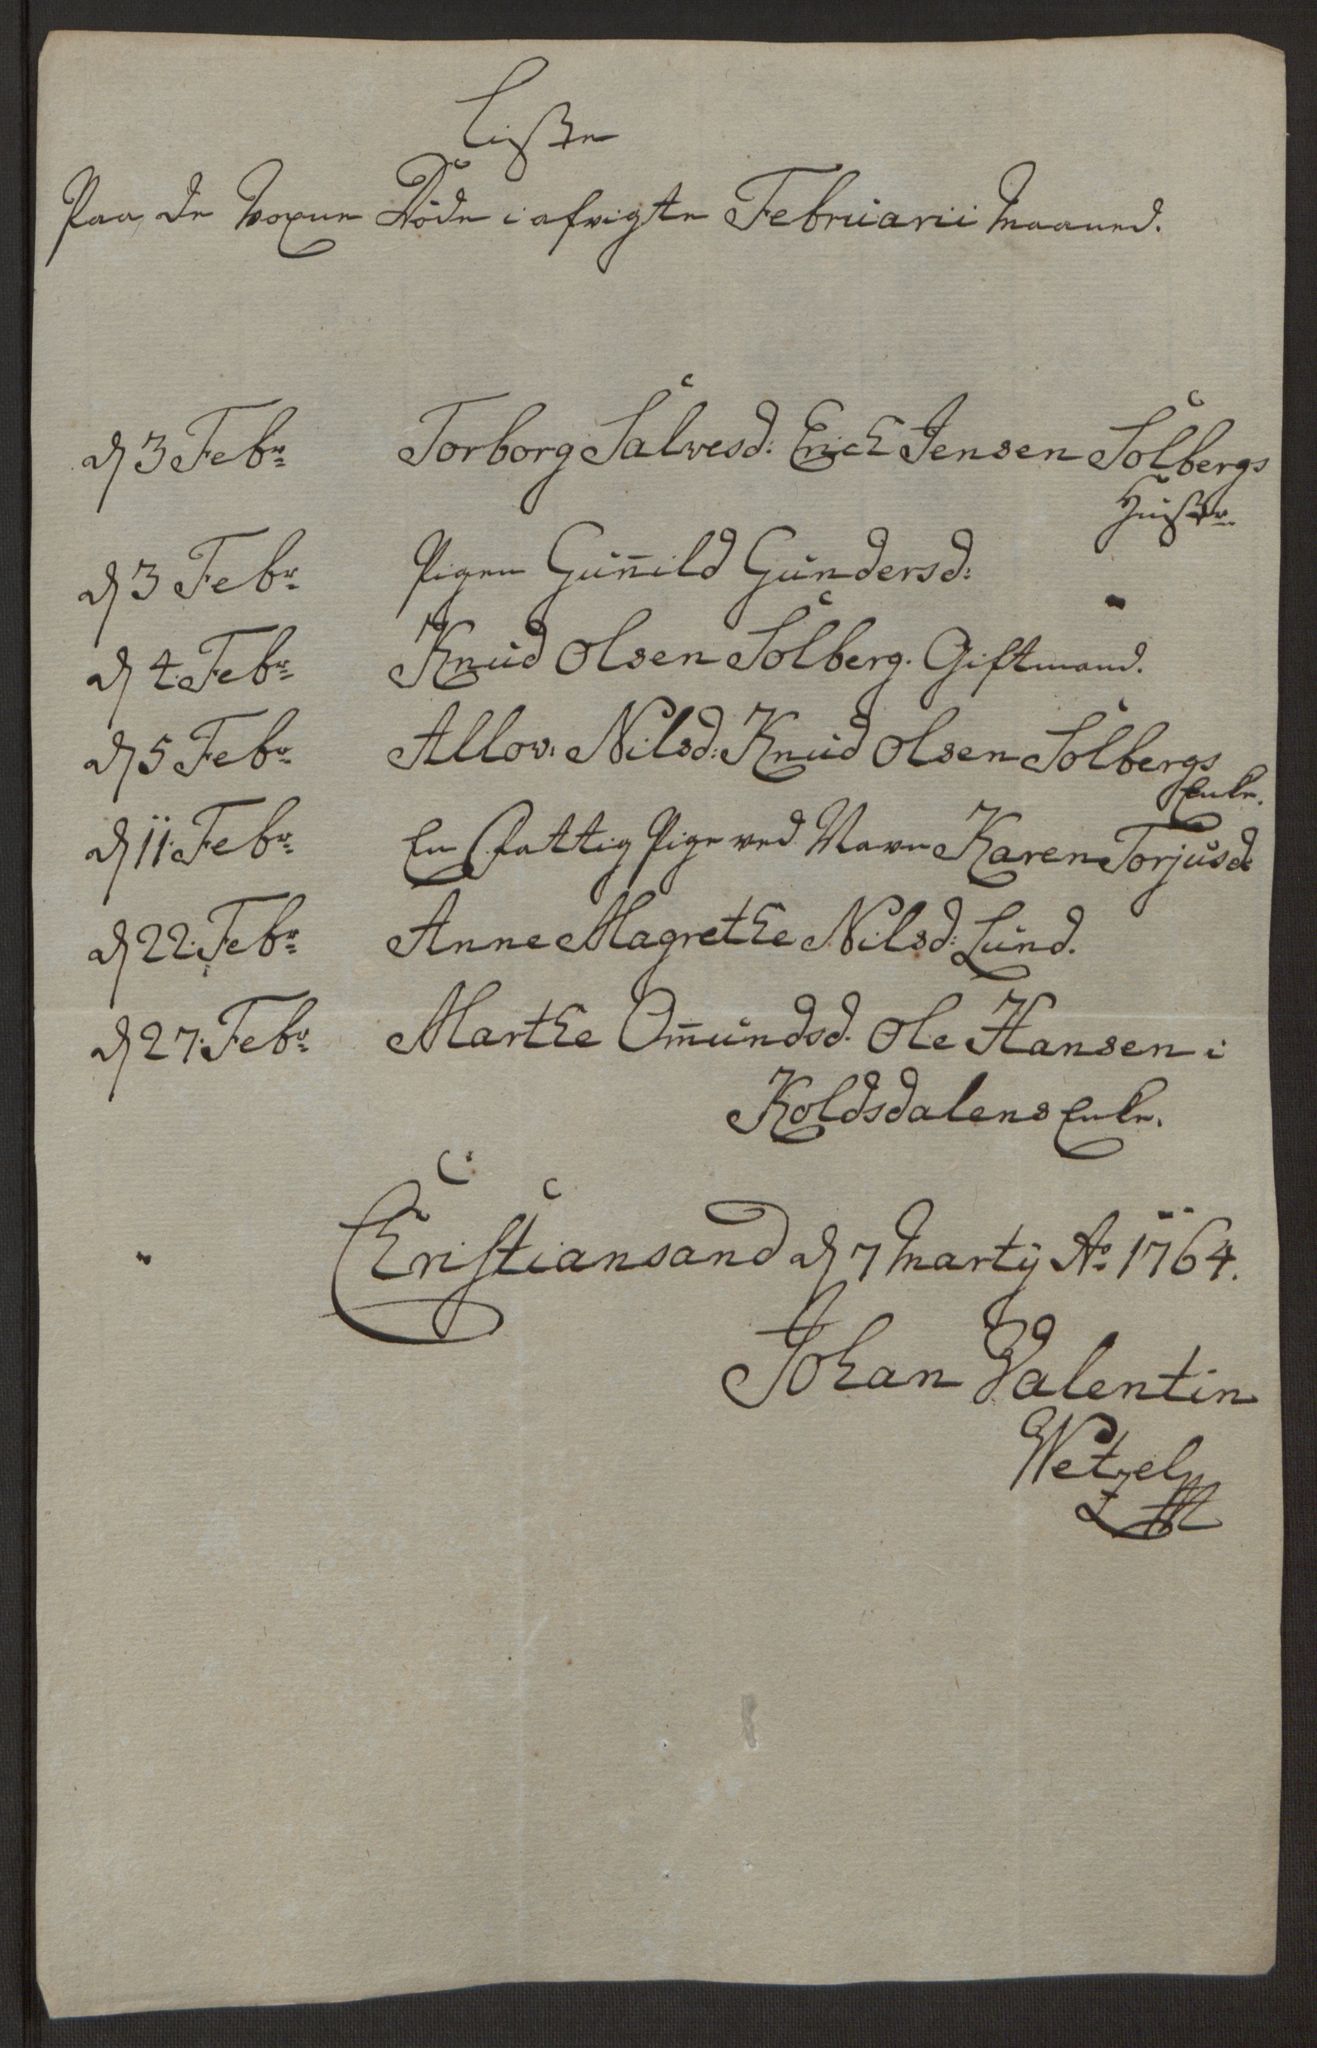 Liste
Paa de Voxne Döde i afvigte Februarii Maaned.
d 3 Febr: Torborg Salvesd: Erich Jensen Solbergs
Hustr:
d 3 Febr: Pigen Gun̄ild Gundersd:
d 4. Febr: Knud Olsen Solberg. Giftmand.
d 5 Febr: Allov: Nilsd: Knud Olsen Solbergs
Enke.
d 11. Febr: En Fattig Pige ved Navn Karen Torjusd:
d 22. Febr: Anne Magrethe Nilsd: Lund.
d 27. Febr: Marthe Om̄undsd. Ole Hansen i
Koldsdalens Enke.
Christiansand d 7 Martij Ao 1764.
Johan Valentin
Wetzel